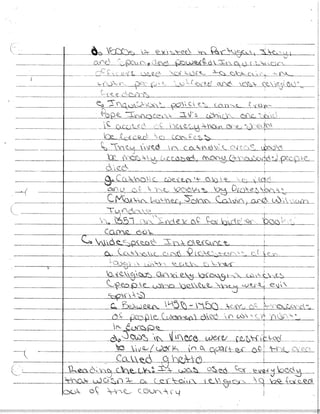 d. 1500s it existed in Portugal, Italy,
and Spain, and powerful Inquisition
officers used torture to obtain the
truth people suffered and lost religious
freedoms
e. Inquisitions policies came from
Pope Innocent IV's which one said
if accused of heresy than are
be forced to confess
f. They lived in catholic areas
be mostly accused, many people
died
g. Catholic weren't able to read
any of the books by Protestants
(Martin Luther, John Calvin, and William
Tyndale)
h. 1557 an Index of forbidden books
came out
C. Widespread Intolerance
a. Catholic and Protestants often
fought with each other
b. religious anxiety brought witches
(people who believe they were evil
spirits)
c. Between 1450-1750 tens of thousands
of people (women) died in witch hunts
in Europe
d. Jews in Vinece were restricted
to live/work in a quarter of the area
called ghetto
Reading check: It was used for everybody
that wasn't a certain religion to be forced
out of the country